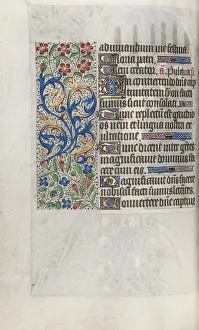 adiuuandum me festina
Gloria patri
eni creator. a. Pulchra
n conuertendo dns cap
tiuitatem syon facti
sumus sicut consolati
unc repletum est gaudio
os nrm et lingua nostra ex
ultatione
unc dicent inter gentes
magnificauit dominus fa
cere cum eis
agnificauit dns facere
nobiscum facti sumus letantes
onuertere dne captiui